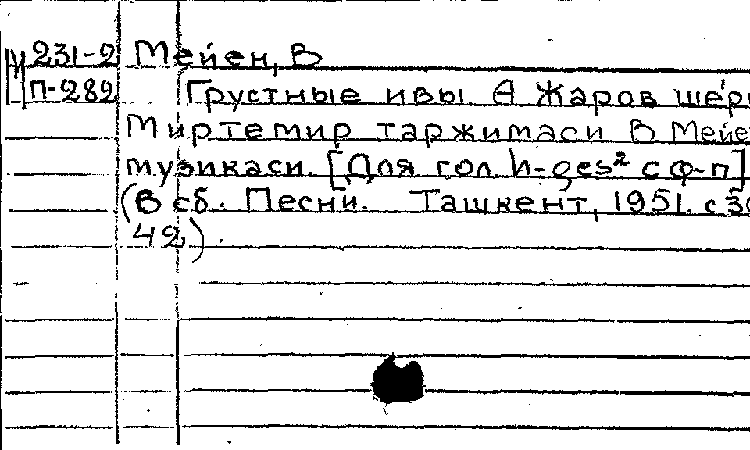 231-2 Мейен, В
П-282 Грустные ивы. А Жаров шеъри
Миртемир таржимаси В Мейе
музикаси. [Для гол. h-ges² с ф-п]
(В сб. Песни. Ташкент, 1951. с 3
42).